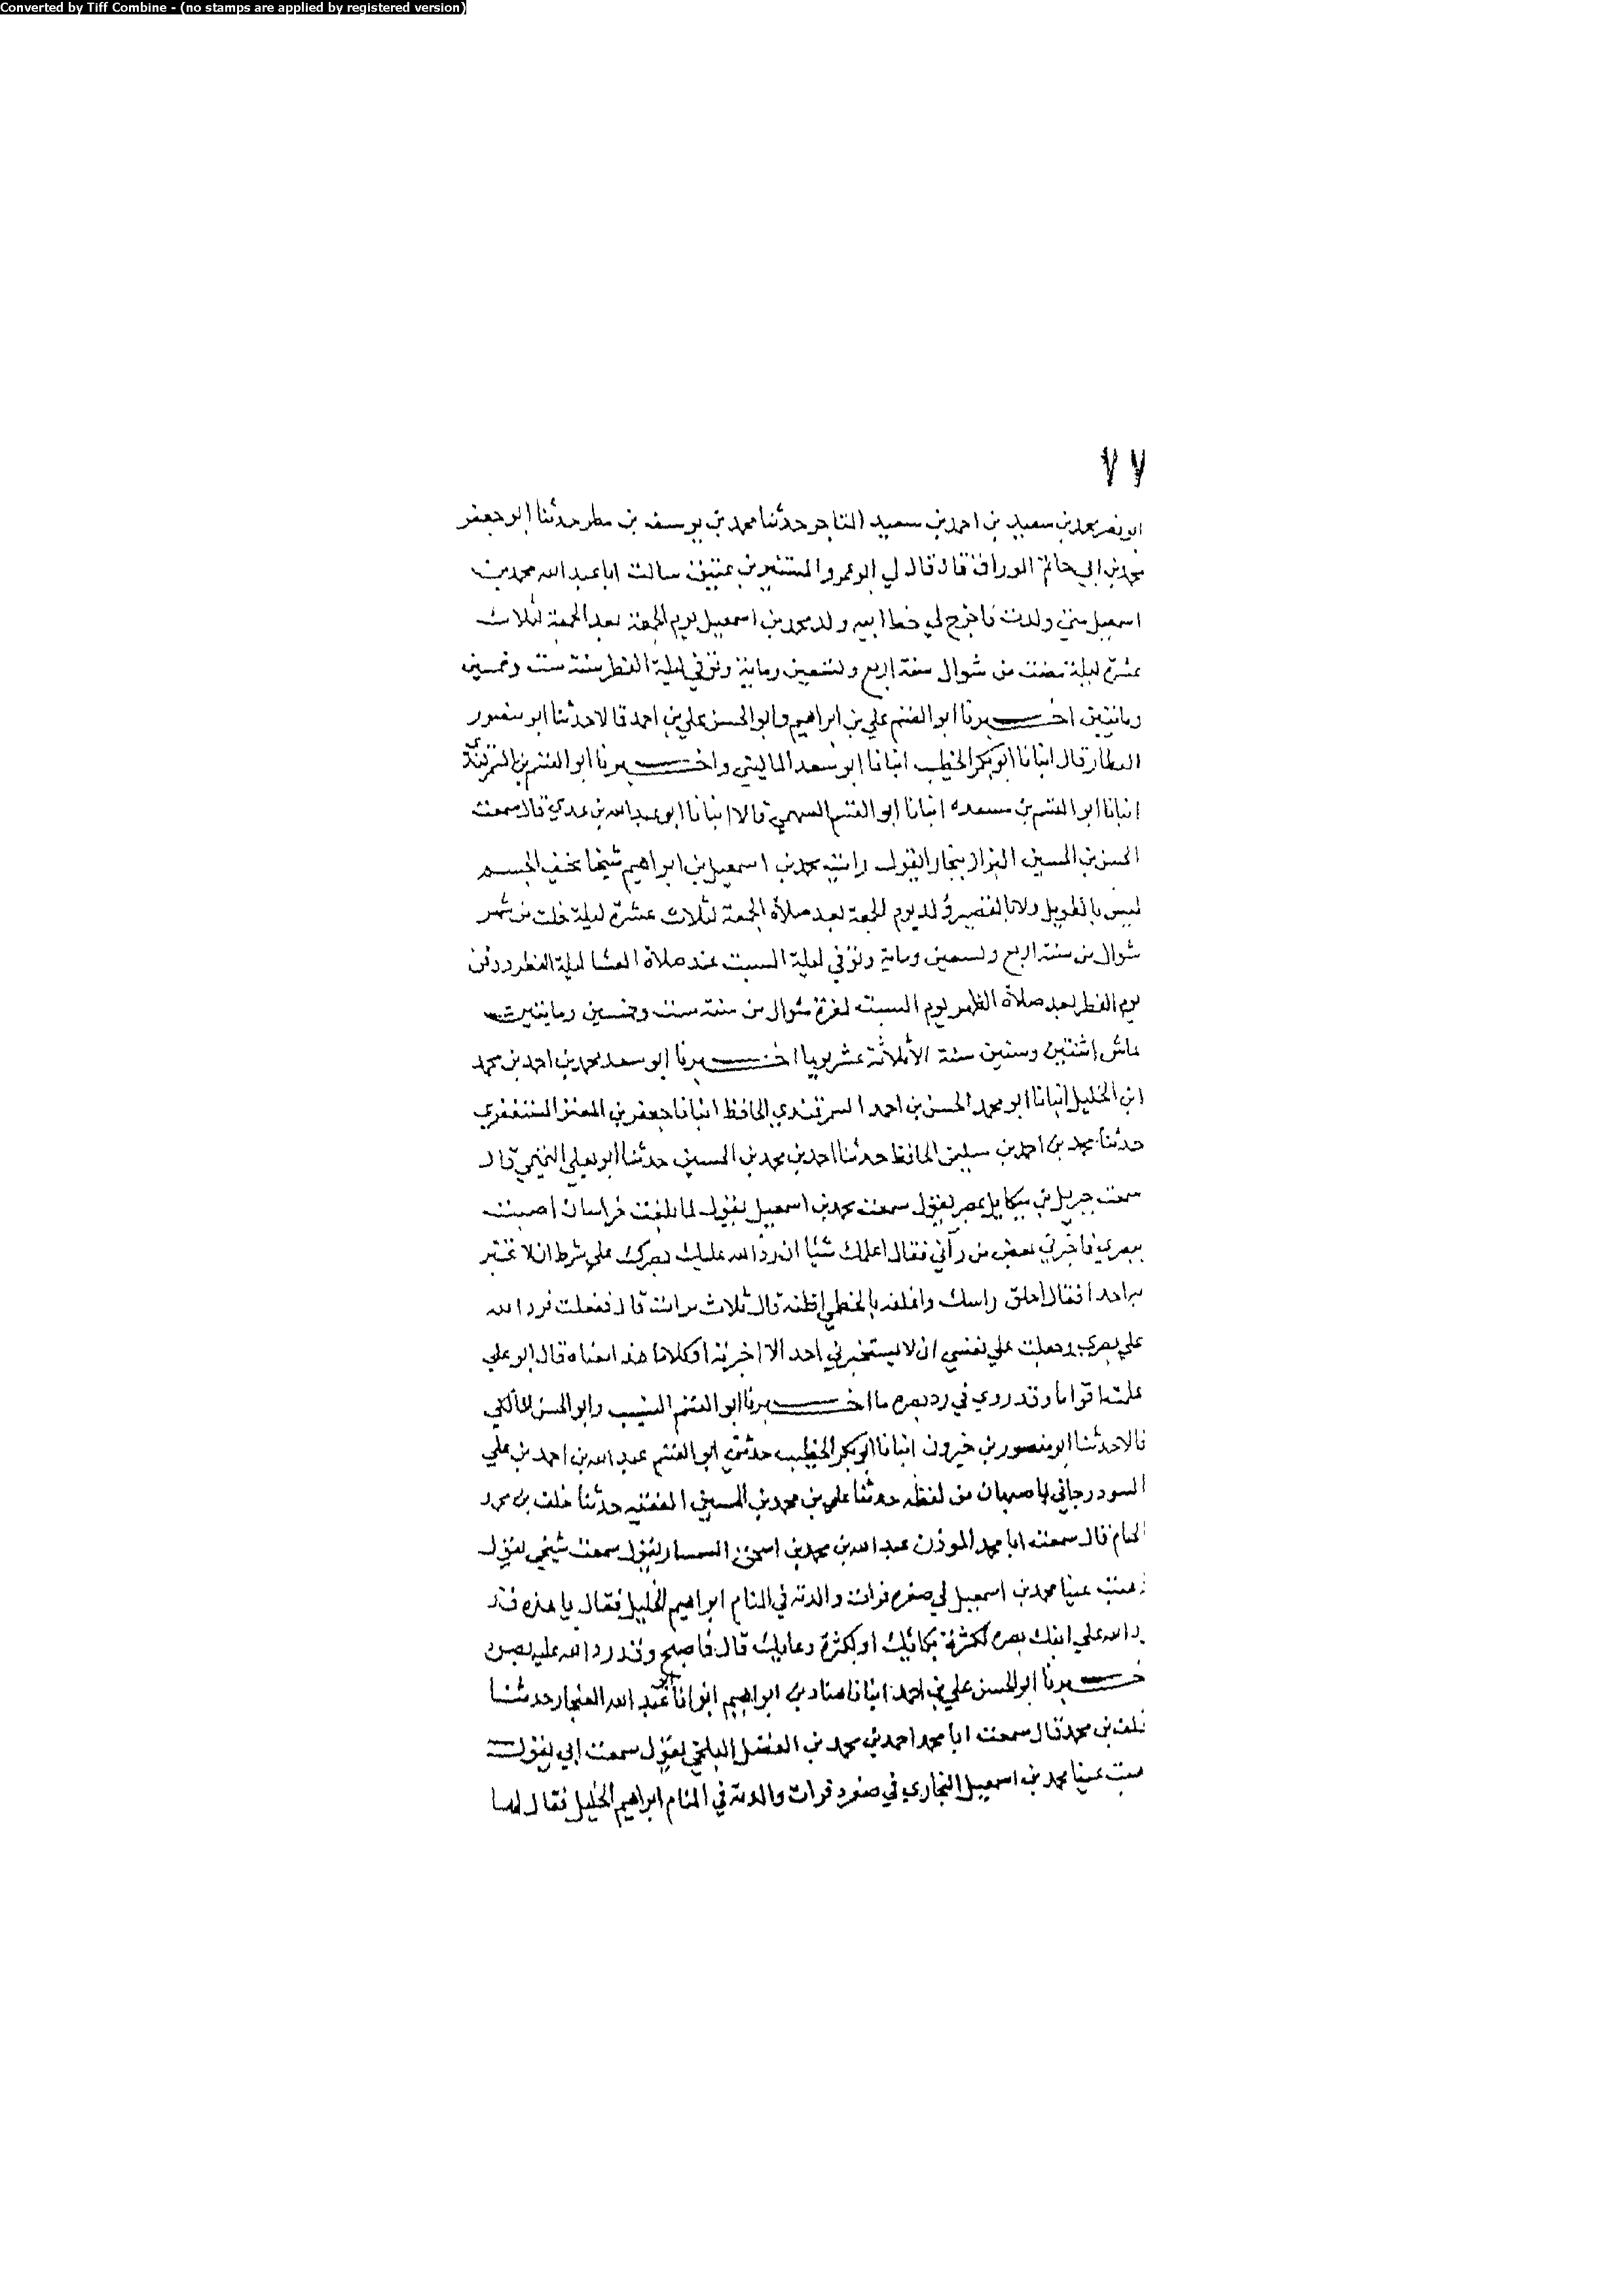 Converted by Tiff Combine - (no stamps are applied by registered version)
٧٧
ابو نصر محمد بن سعيد بن احمد بن سعيد التاجر حدثنا محمد بن يوسف بن مطر حدثنا ابو جعفر
محمد بن ابي حاتم الوراق قال قال لي ابو عمرو المستنير بن عتيق سالت ابا عبد الله محمد بن
اسمعيل متى ولدت فاخرج لي خط ابيه ولد محمد بن اسمعيل يوم الجمعة بعد الجمعة لثلاث
عشرة ليلة مضت من شوال سنة اربع وتسعين ومائة وتوفي ليلة الفطر سنة ست وخمسين
ومائتين اخبرنا ابو القسم علي بن ابراهيم وابو الحسن علي بن احمد قالا حدثنا ابو منصور
العطار قال انبانا ابو بكر الخطيب انبانا ابو سعد الماليني واخبرنا ابو القسم بن السمرقندي
انبانا ابو القسم بن مسعده انبانا ابو القسم السهمي قالا انبانا ابو عبد الله بن عدي قال سمعت
الحسن بن الحسين البزاز ببخارا يقول رايت محمد بن اسمعيل بن ابراهيم شيخا نحيف الجسم
ليس بالطويل ولا بالقصير ولد يوم الجمعة بعد صلاة الجمعة لثلاث عشرة ليلة خلت من شهر
شوال من سنة اربع وتسعين ومائة وتوفي ليلة السبت عند صلاة العشا ليلة الفطر ودفن
يوم الفطر بعد صلاة الظهر يوم السبت لغرة شوال من سنة ست وخمسين ومايتين
عاش اثنتين وستين سنة الا ثلاثة عشر يوما اخبرنا ابو سعد محمد بن احمد بن محمد
ابن الخليل انبانا ابو محمد الحسن بن احمد السمرقندي الحافظ انبانا جعفر بن المعتز المستغفري
حدثنا محمد بن احمد بن سليمن الحافظ حدثنا احمد بن محمد بن الحسين حدثنا ابو يعلي التميمي قال
سمعت جبريل بن ميكايل بمصر يقول سمعت محمد بن اسمعيل يقول لما بلغت خراسان اصبت
ببصري فاخبرني بعض من رآني فقال اعلمك شيا ان رد الله عليك بصرك علي شرط ان لا تخبر
به احدا فقال احلق راسك واغلفه بالخطمي اظنه قال ثلاث مرات قال ففعلت فرد الله
علي بصري وجعلت علي نفسي ان لا يستخبرني احد الا اخبرته او كلاما هذا معناه قال ابو علي
علمتها قواما وقد روي في رد بصره ما اخبرنا ابو القسم النسيب وابو الحسن المالكي
قالا حدثنا ابو منصور بن خيرون انبانا ابو بكر الخطيب حدثني ابو القسم عبد الله بن احمد بن علي
السودرجاني باصبهان من لفظه حدثنا علي بن محمد بن الحسين الفقيه حدثنا خلف بن محمد
الخيام قال سمعت ابا محمد الموذن عبد الله بن محمد بن اسحق السمسار يقول سمعت شيخي يقول
ذهبت عينا محمد بن اسمعيل في صغره فرات والدته في المنام ابراهيم الخليل فقال يا هذه قد
رد الله علي ابنك بصره لكثرة بكائك او لكثرة دعايك قال فاصبح وقد رد الله عليه بصره
اخبرنا ابو الحسن علي بن احمد انبانا هناد بن ابراهيم ابو عبد الله الغنجار حدثنا
خلف بن محمد قال سمعت ابا محمد احمد بن محمد بن الفضل البلخي يقول سمعت ابي يقول
ذهبت عينا محمد بن اسمعيل البخاري في صغره فرات والدته في المنام ابراهيم الخليل فقال لها